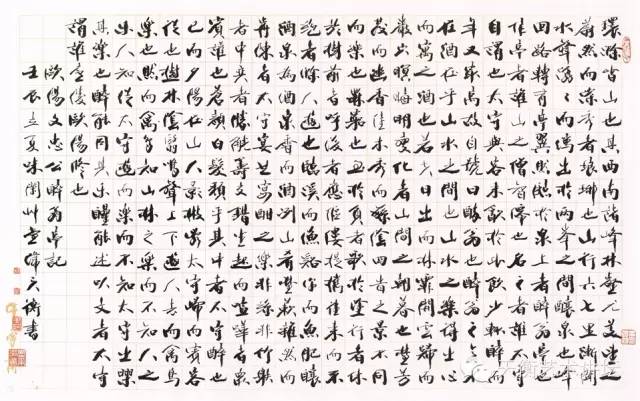 環滁皆山也其西南諸峰林壑尤美望之
蔚然而深秀者琅琊也山行六七里漸聞
水聲潺潺而瀉出於兩峯之間釀泉也峰
回路轉有亭翼然臨於泉上者醉翁亭也
作亭者誰山之僧智僊也名之者誰太守
自謂也太守與客來飲於此飲少輒醉而
年又最高故自號曰醉翁也醉翁之意不
在酒在乎山水之間也山水之樂得之心
而寓之酒也若夫日出而林霏開雲歸而
巖穴暝晦明變化者山間之朝暮也野芳
發而幽香佳木秀而繁陰四時之景不同
而樂亦無窮也至於負者歌於塗行者休
於樹前者呼後者應傴僂提攜往來而不
絕者滁人遊也臨溪而漁谿深而魚肥釀
泉為酒泉香而酒洌山肴野蔌雜然而
前陳者太守宴也宴酣之樂非絲非竹射
者中弈者勝觥籌交錯坐起而諠譁者衆
賓懽也蒼顏白髮頹乎其中者太守醉也
已而夕陽在山人影散亂太守歸而賓客
從也樹林陰翳鳴聲上下遊人去而禽鳥
樂也然而禽鳥知山林之樂而不知人之
樂人知從太守遊而樂而不知太守之樂
其樂也醉能同其樂醒能述以文者太守
謂誰廬陵歐陽脩也
歐陽文忠公醉翁亭記
壬辰立夏味閑艸堂韓天衡書